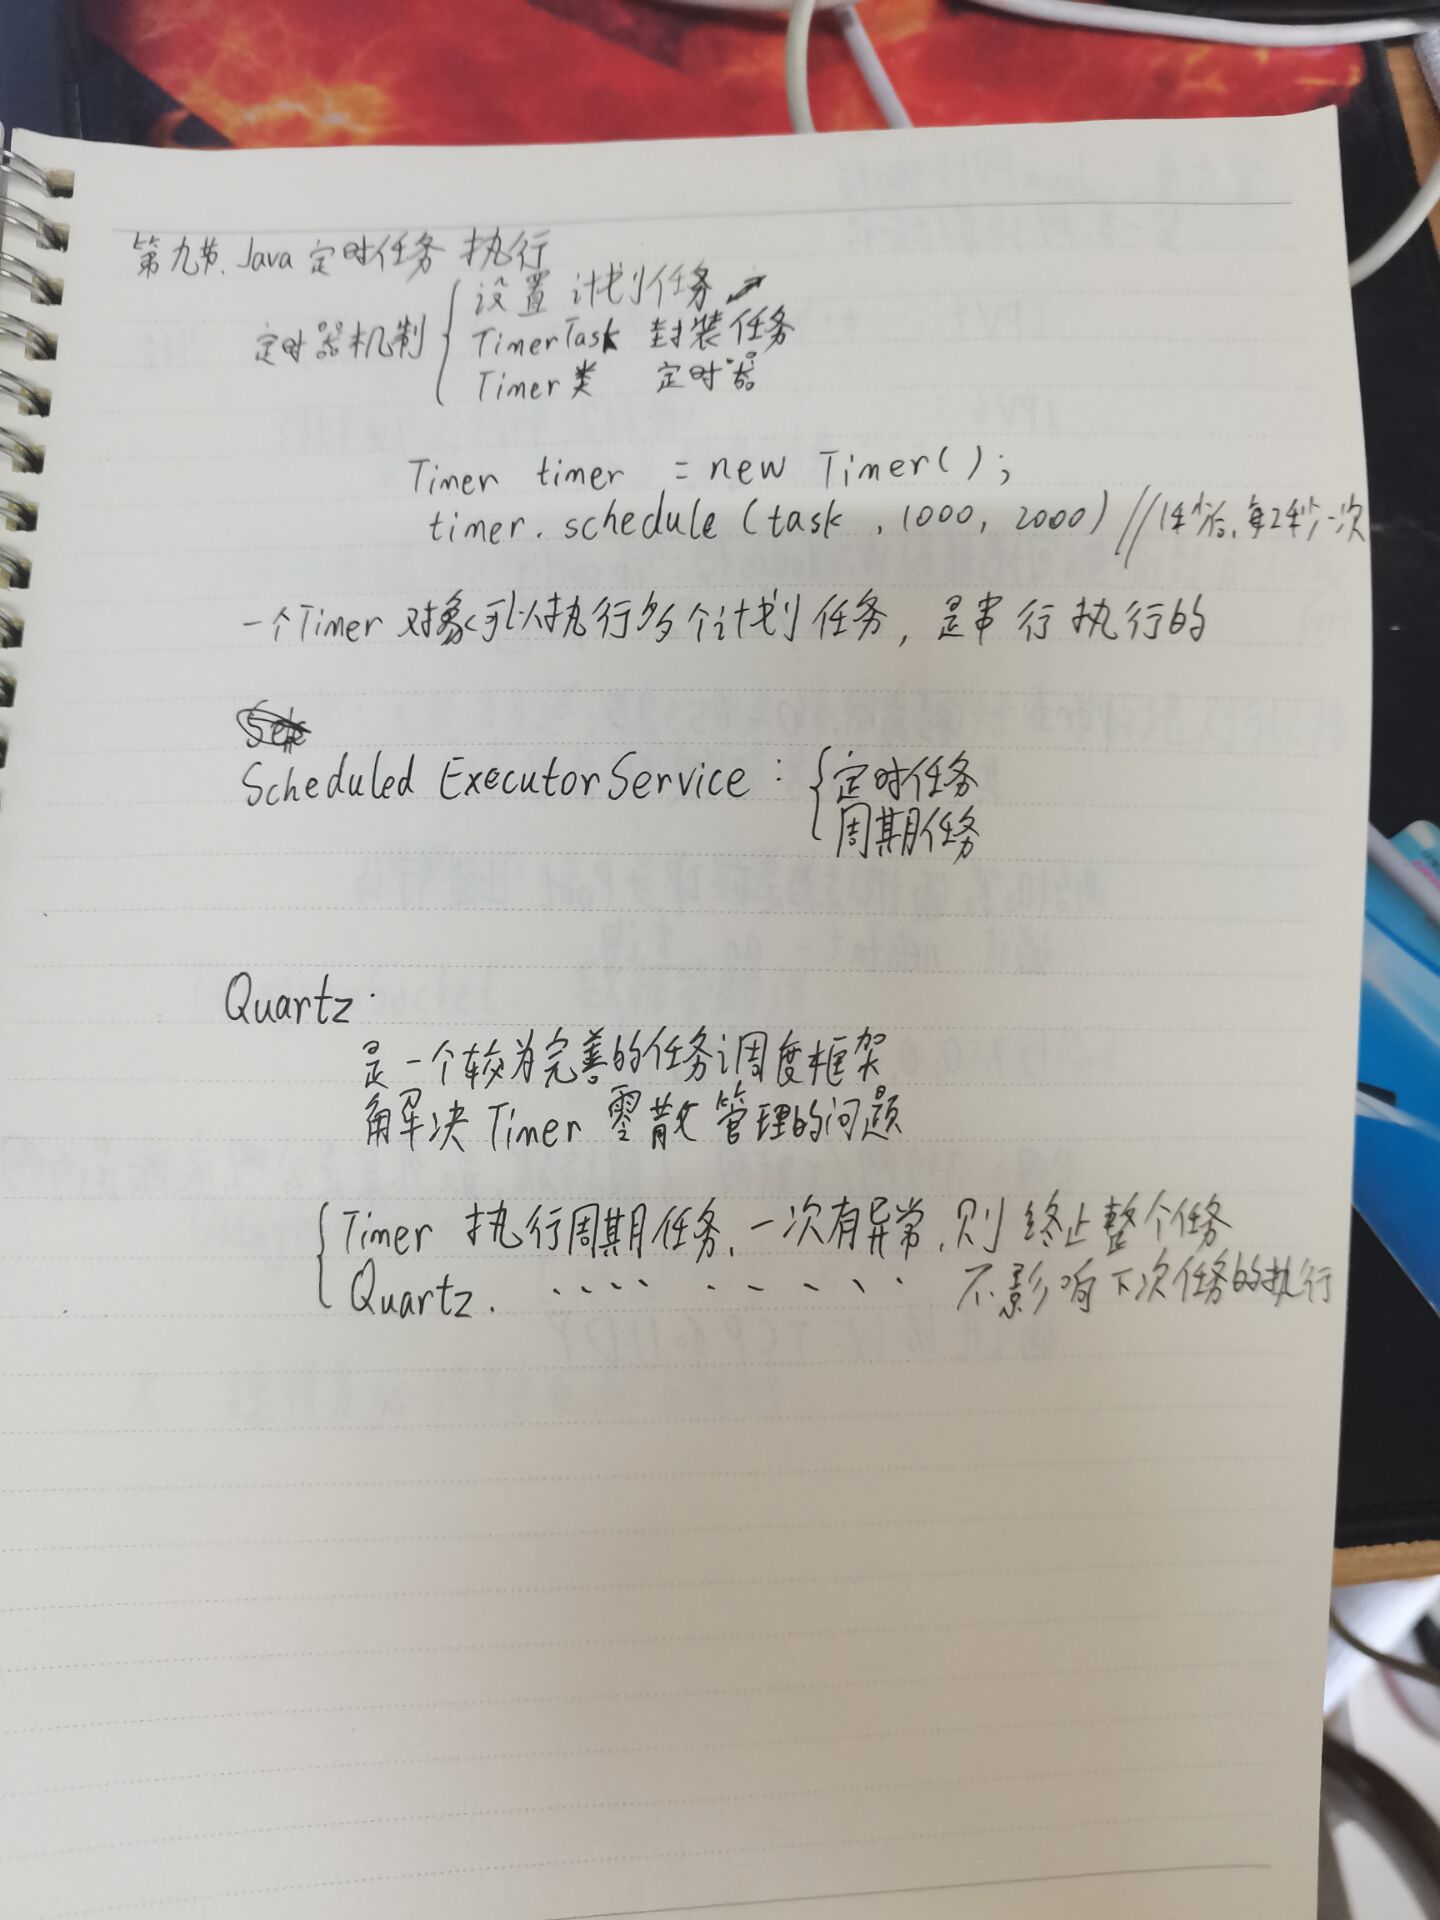 第九节、Java 定时任务 执行
定时器机制 { 设置 计划任务
TimerTask 封装任务
Timer类 定时器
Timer timer = new Timer();
timer.schedule (task , 1000, 2000) //1秒后,每2秒一次
一个Timer 对象可以执行多个计划任务, 是串行执行的
Scheduled ExecutorService : { 定时任务
周期任务
Quartz.
是一个较为完善的任务调度框架
解决 Timer 零散管理的问题
{ Timer 执行周期任务, 一次有异常, 则终止整个任务
Quartz. ···· ····· 不影响下次任务的执行